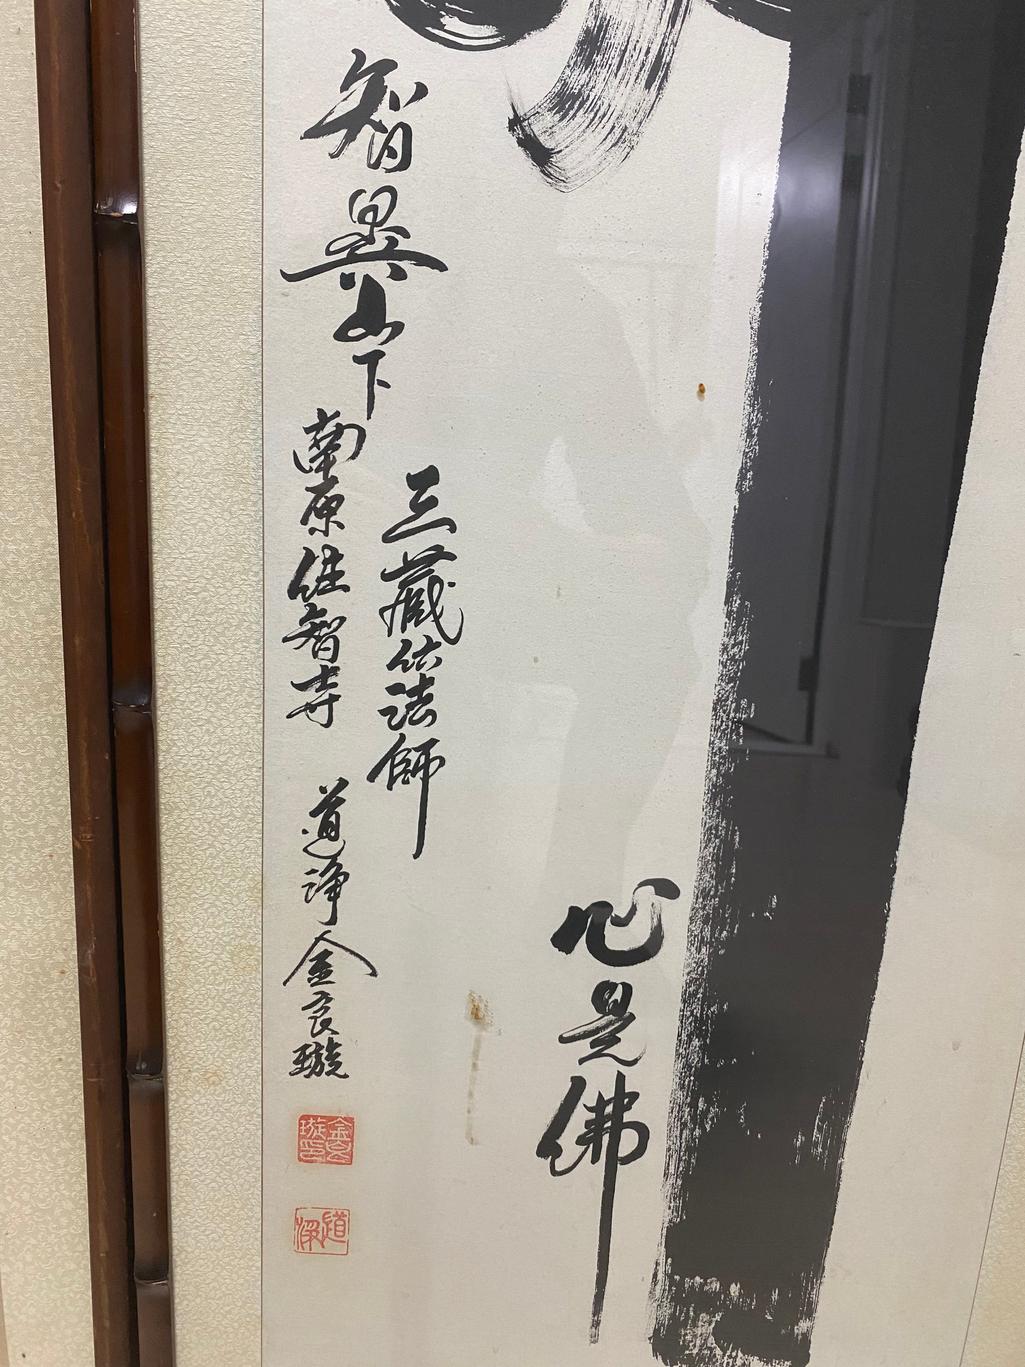 心是佛
三藏法師
智異山下
南原佳智寺 道淨 金良璇
金良璇印
道淨